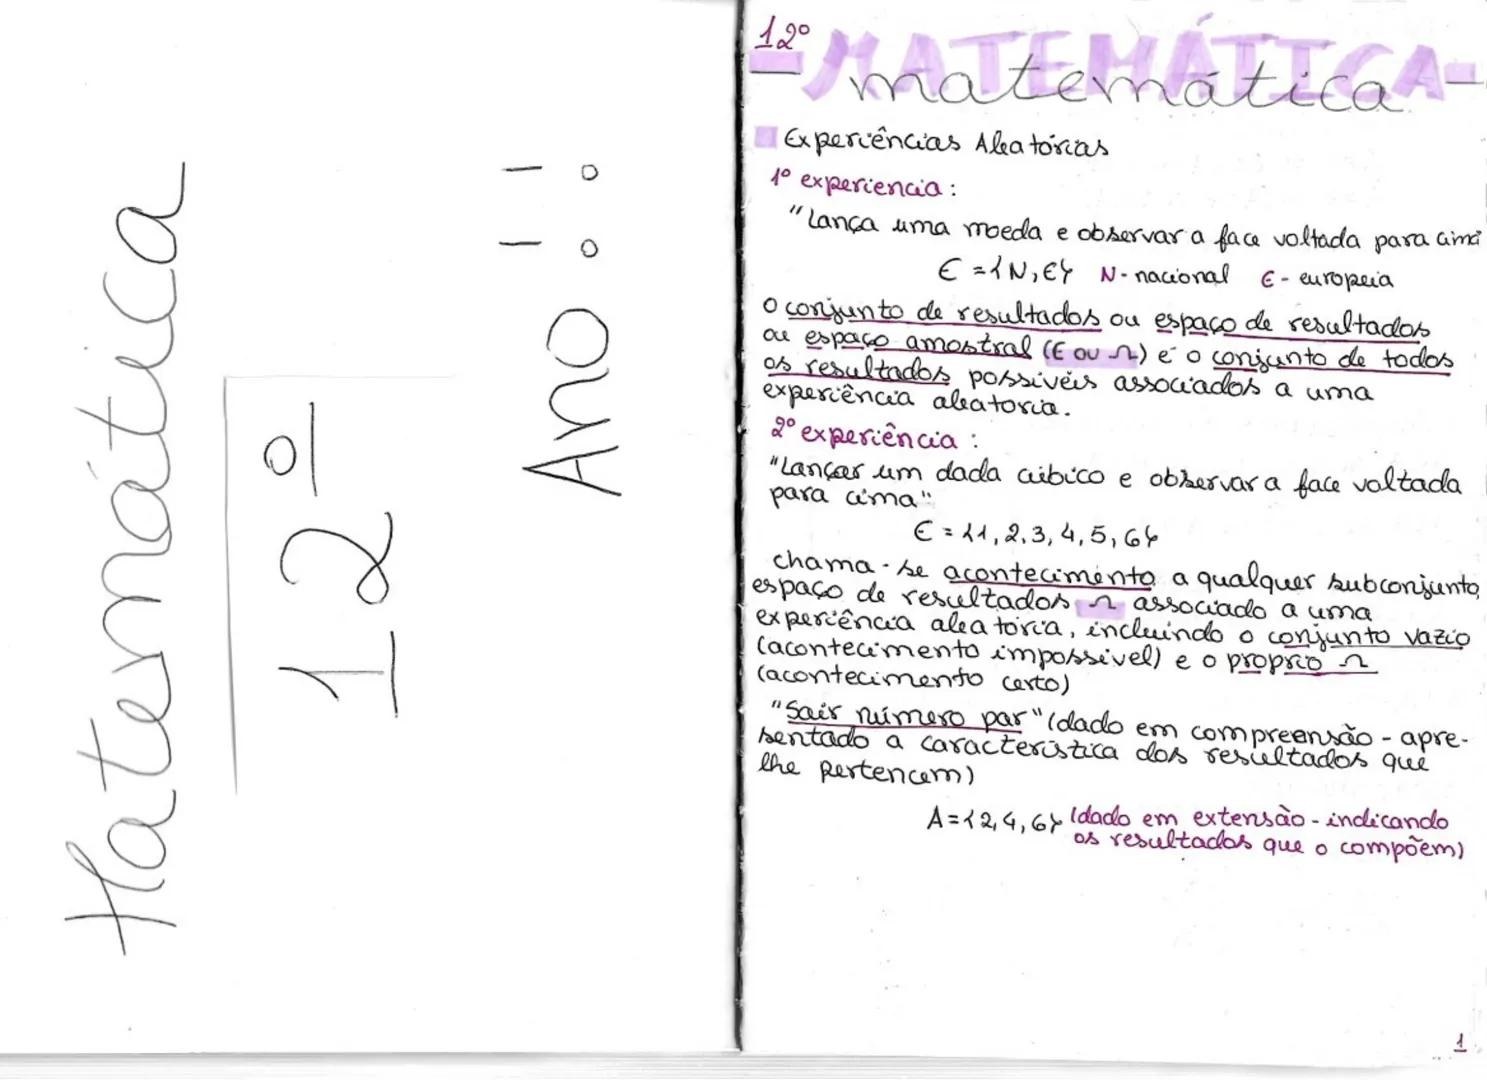 Matemática
12º
Ano!!
12º
-MATEMÁTICA-
matemática
Experiências Aleatórias
1º experiencia:
"Lança uma moeda e observar a face voltada para cima
E = {N, E} N-nacional E-europeia
O conjunto de resultados ou espaço de resultados
ou espaço amostral (E ou Ω) é o conjunto de todos
os resultados possivéis associados a uma
experiência aleatoria.
2º experiência:
"Lançar um dada cúbico e observar a face voltada
para cima"
E = {1, 2, 3, 4, 5, 6}
chama-se acontecimento a qualquer subconjunto
espaço de resultados Ω associado a uma
experiência aleatória, incluindo o conjunto vazio
(acontecimento impossível) e o proprio Ω
(acontecimento certo)
"Sair número par" (dado em compreensão - apre-
sentado a caracteristica dos resultados que
lhe pertencem)
A = {2, 4, 6} (dado em extensão - indicando
os resultados que o compõem)
1